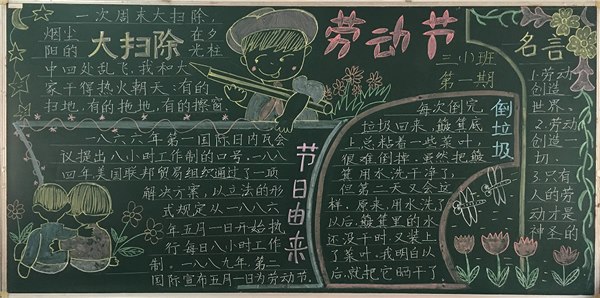 劳动节
三小班
第一期
大扫除
一次周末大扫除，
烟尘在夕
阳的光柱
中四处乱飞，我和大
家干得热火朝天：有的
扫地，有的拖地，有的擦窗
节日由来
一八六六年第一国际日内瓦会
议提出八小时工作制的口号。一八八
四年美国联邦贸易组织通过了一项
解决方案，以立法的形
式规定从一八八六
年五月一日开始执
行每日八小时工作
制。一八八九年，第二
国际宣布五月一日为劳动节。
倒垃圾
每次倒完
垃圾回来，簸箕底
上总粘着一些菜叶，
很难倒掉。虽然把簸
箕用水洗干净了，
但第二天又会这
样。原来，用水洗了
以后，簸箕里的水
还没干时，又装上
了菜叶。我明白以
后，就把它晒干了。
名言
1.劳动
创造
世界。
2.劳动
创造一
切。
3.只有
人的劳
动才是
神圣的